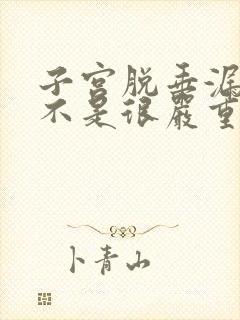 子宫脱垂漏
不是很严重
卜青山